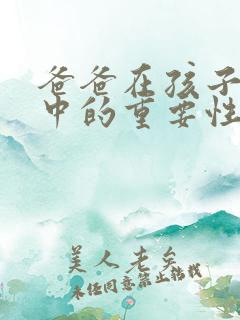 爸爸在孩子
中的重要性
美人老矣
未经同意禁止转载